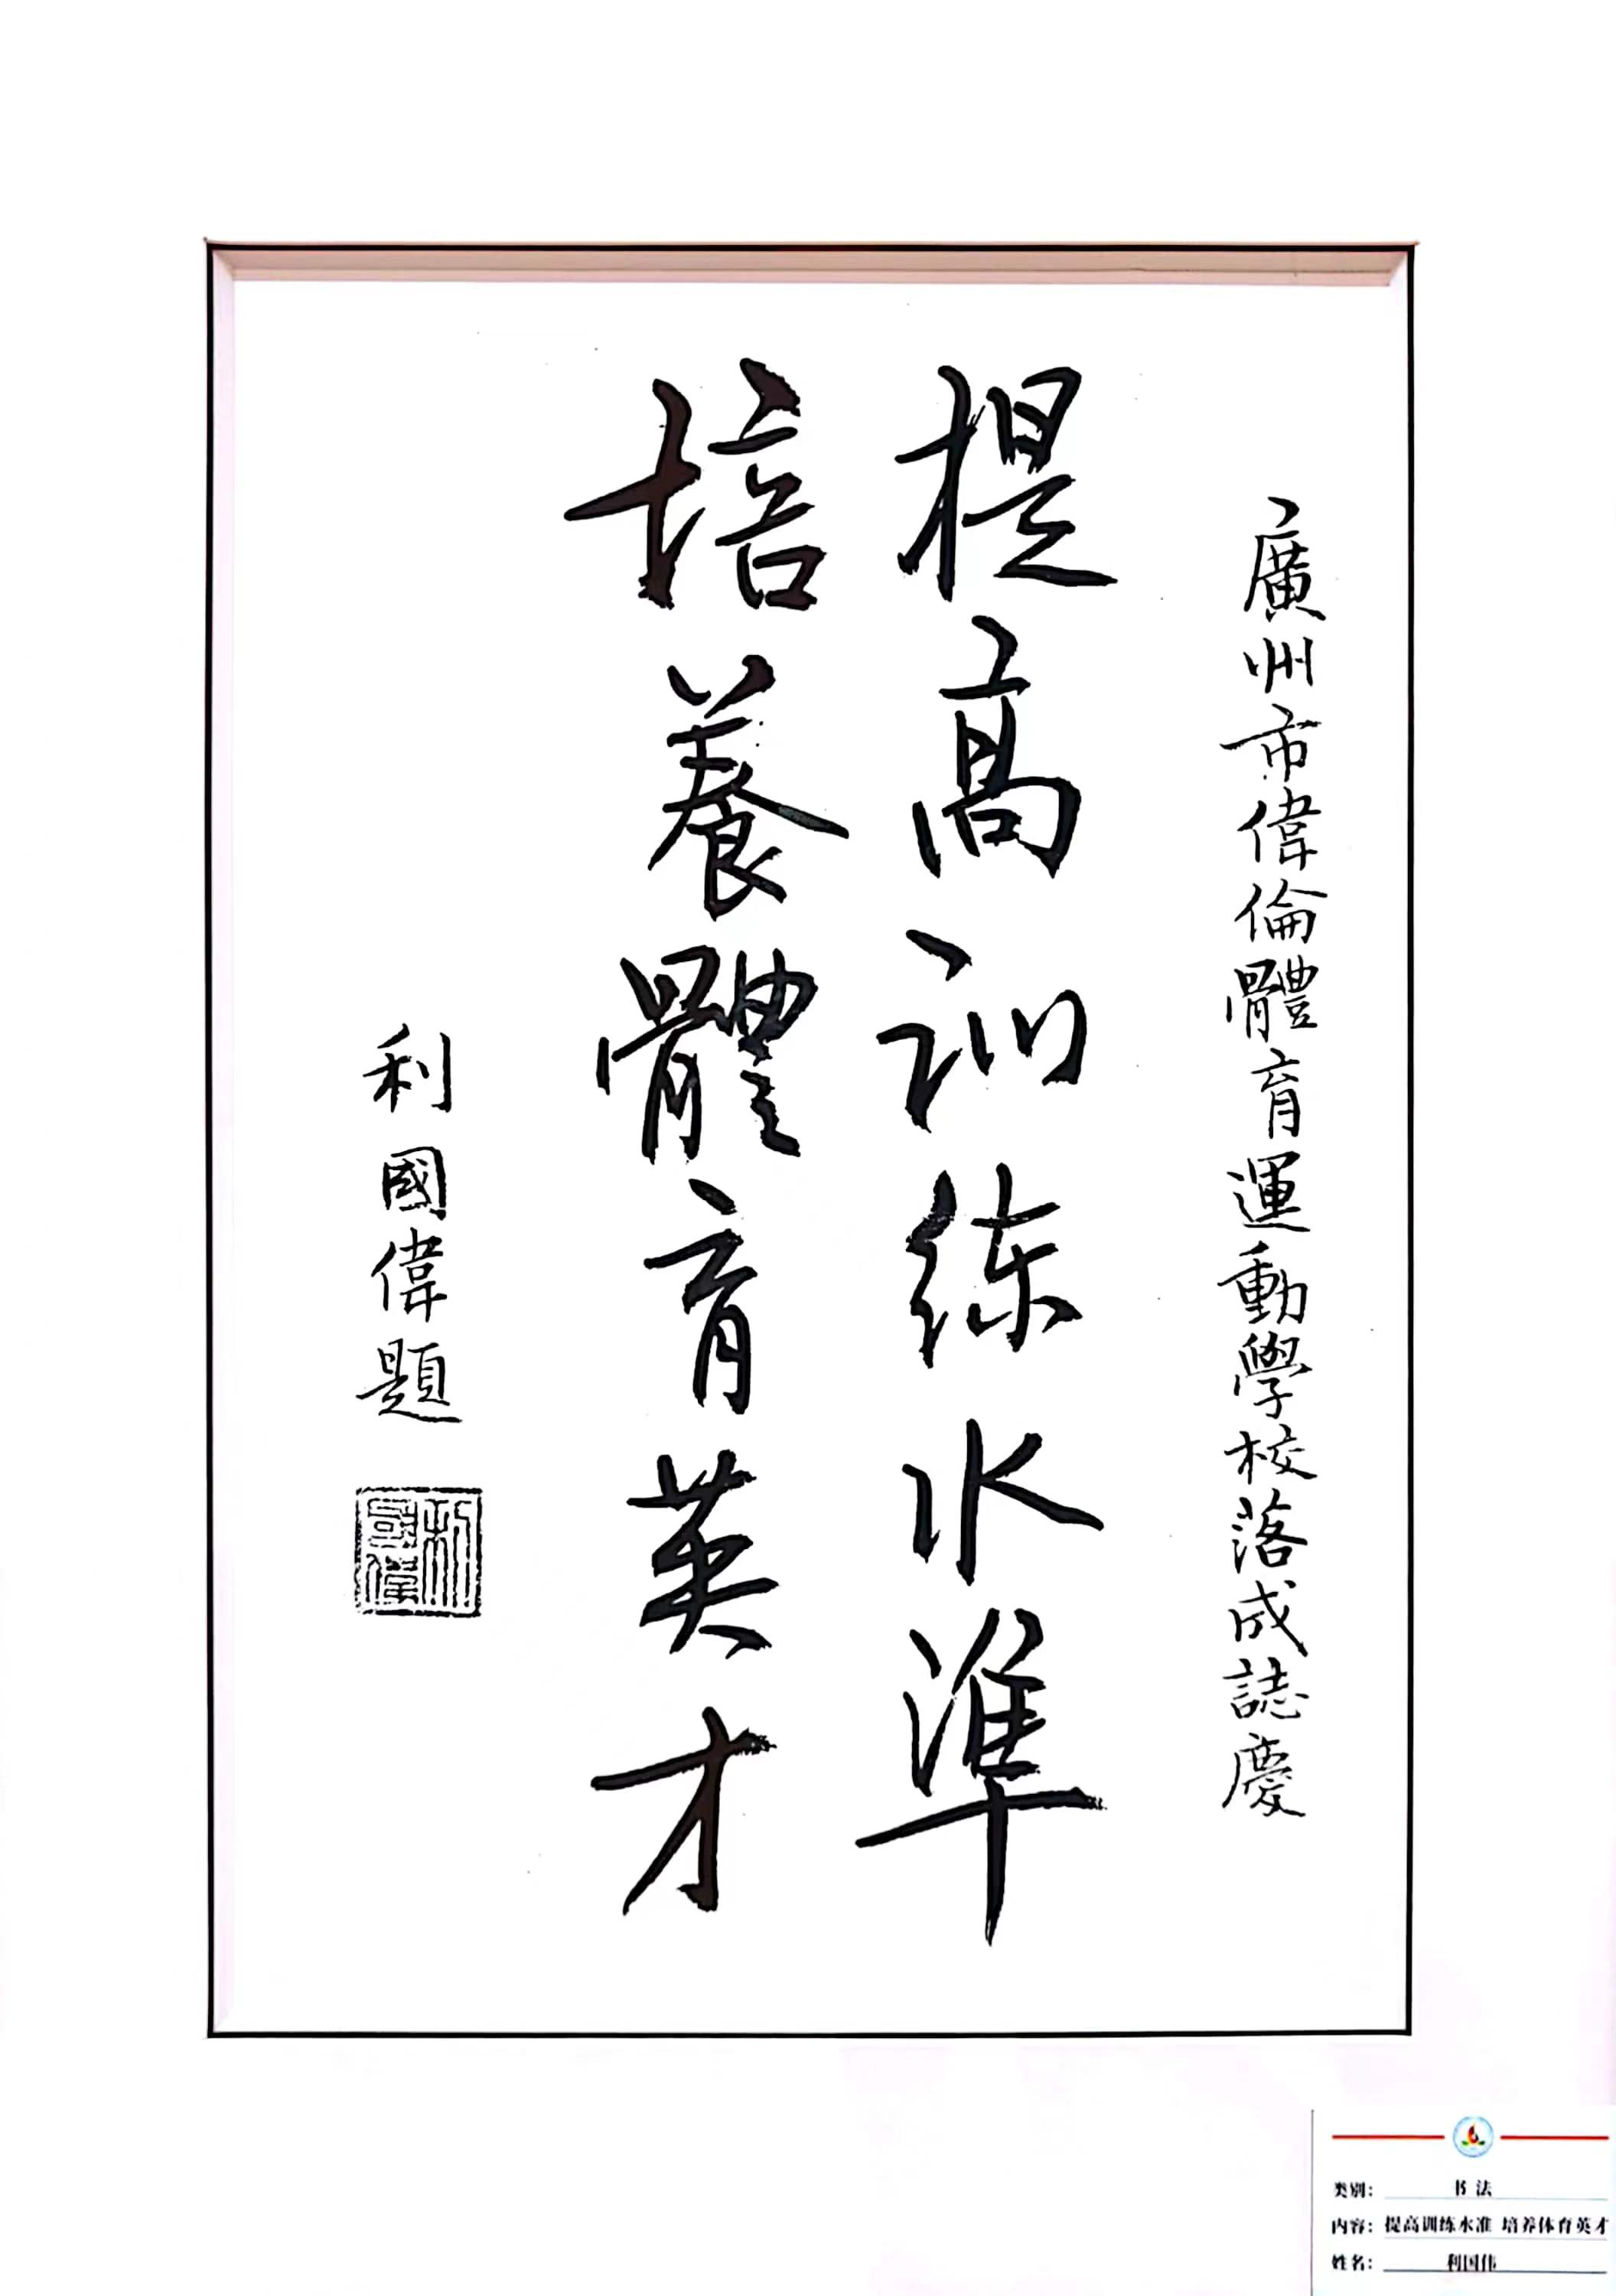 廣州市偉倫體育運動學校落成誌慶
提高訓練水準
培養體育英才
利國偉題
利國偉
类别： 书法
内容： 提高训练水准 培养体育英才
姓名： 利国伟